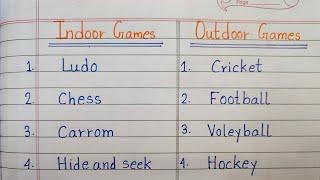 Page
Indoor Games Outdoor Games
1. Ludo 1. Cricket
2. Chess 2. Football
3. Carrom 3. Voleyball
4. Hide and seek 4. Hockey